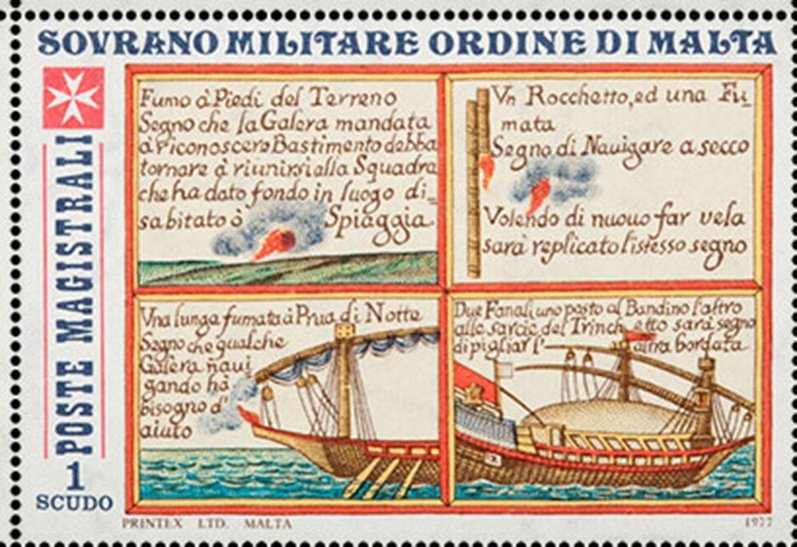 SOVRANO MILITARE ORDINE DI MALTA
POSTE MAGISTRALI
1
SCUDO
Fumo à Piedi del Terreno
Segno che la Galera mandata
à riconoscere Bastimento debba
tornare à riunirsi alla Squadra
che ha dato fondo in luogo di=
sabitato ò Spiaggia
Vn Rocchetto, ed una Fu=
mata
Segno di Nauigare a secco
Volendo di nuouo far vela
sarà replicato l'istesso segno
Vna lunga fumata à Prua di Notte
Segno che qualche
Galera naui
gando hà
bisogno d'
aiuto
Due Fanali uno posto al Bandino l'altro
alle sarcie del Trinchetto sarà segno
di pigliar l'altra bordata
PRINTEX LTD. MALTA
1977